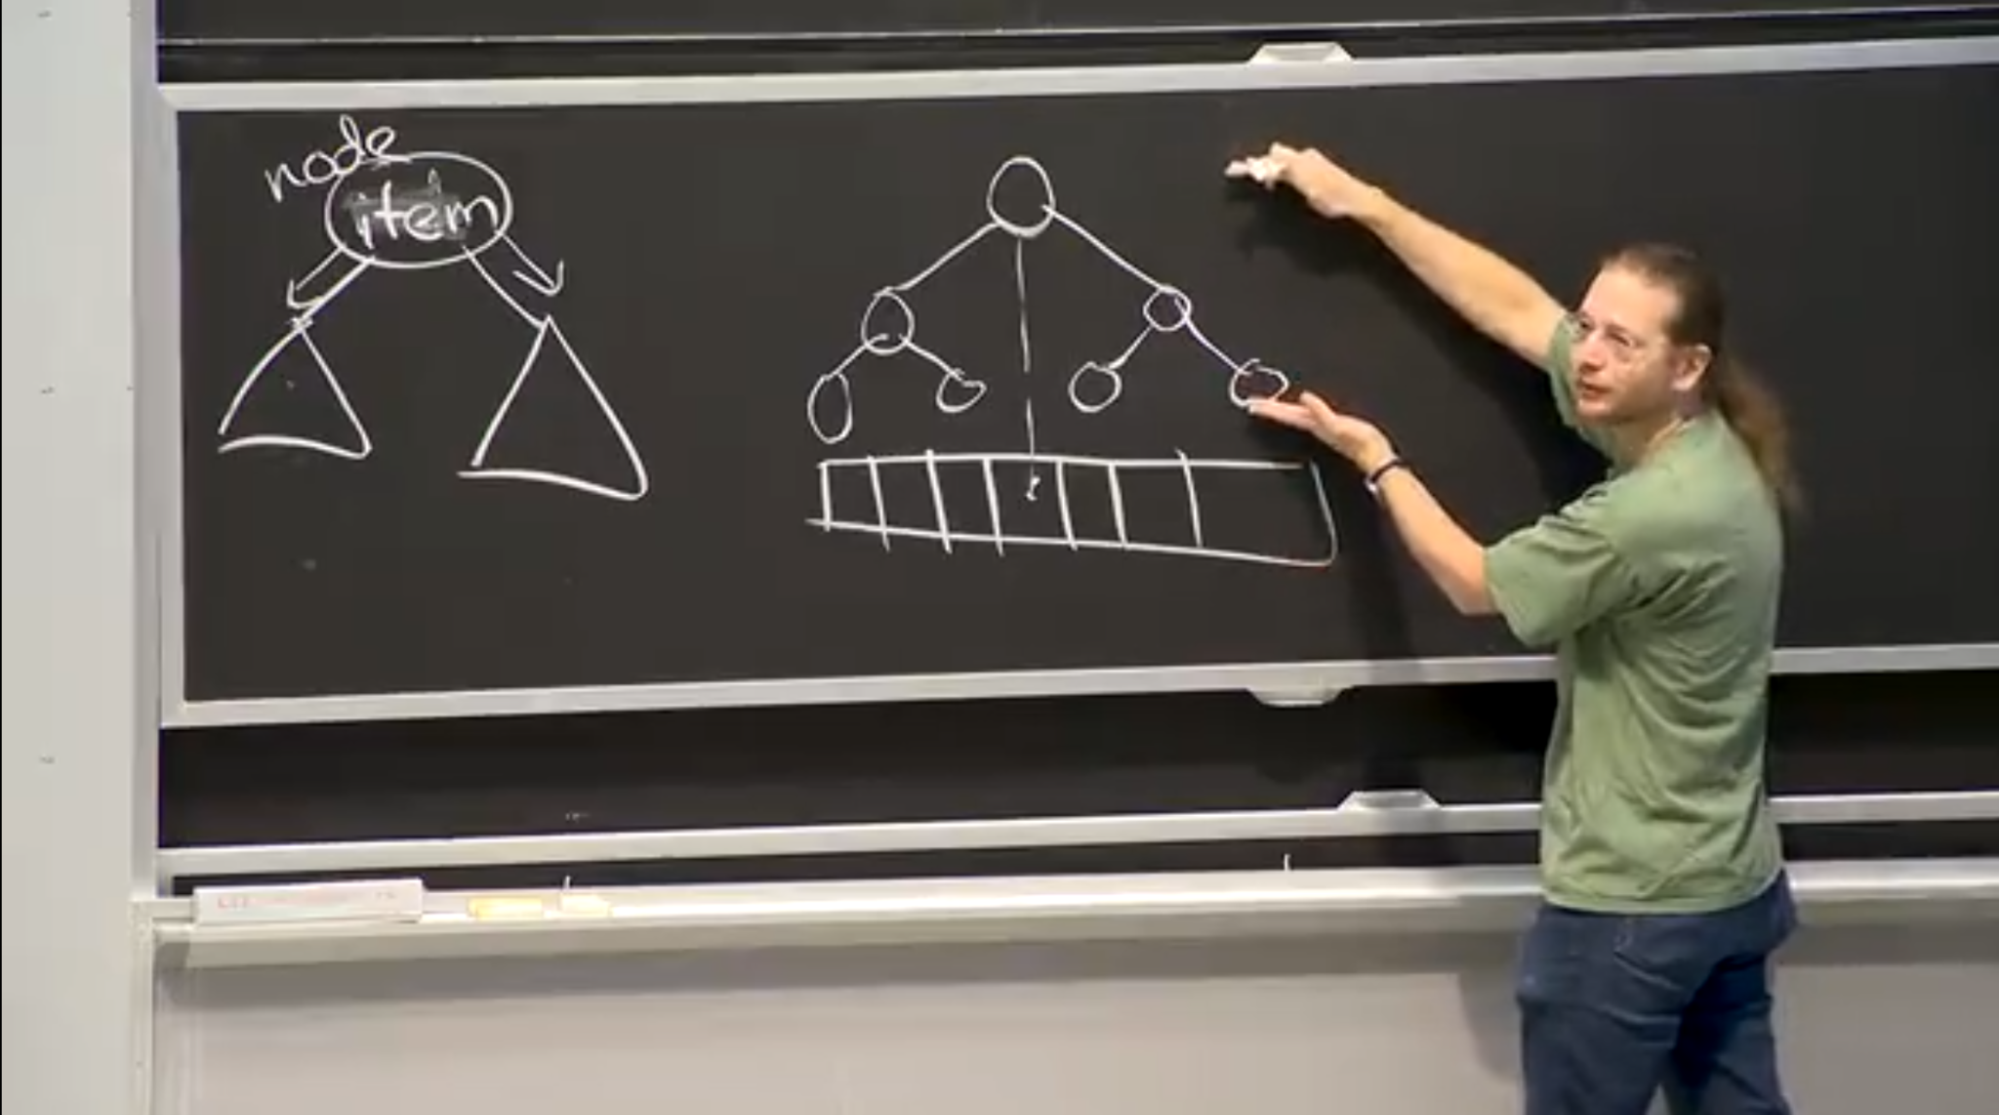 node
item